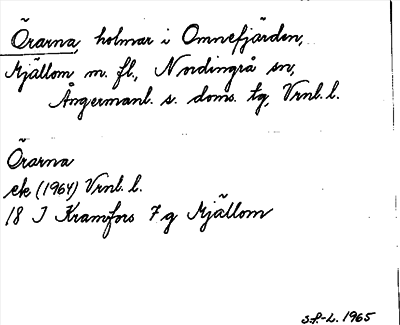 Örarna, holmar i Omnefjärden,
Mjällom m. fl., Nordingrå sn,
Ångermanl. s. doms. tg, Vrnl. l.
Örarna
ek (1964) Vrnl. l.
18 J Kramfors 7 g Mjällom
S.F.-L. 1965